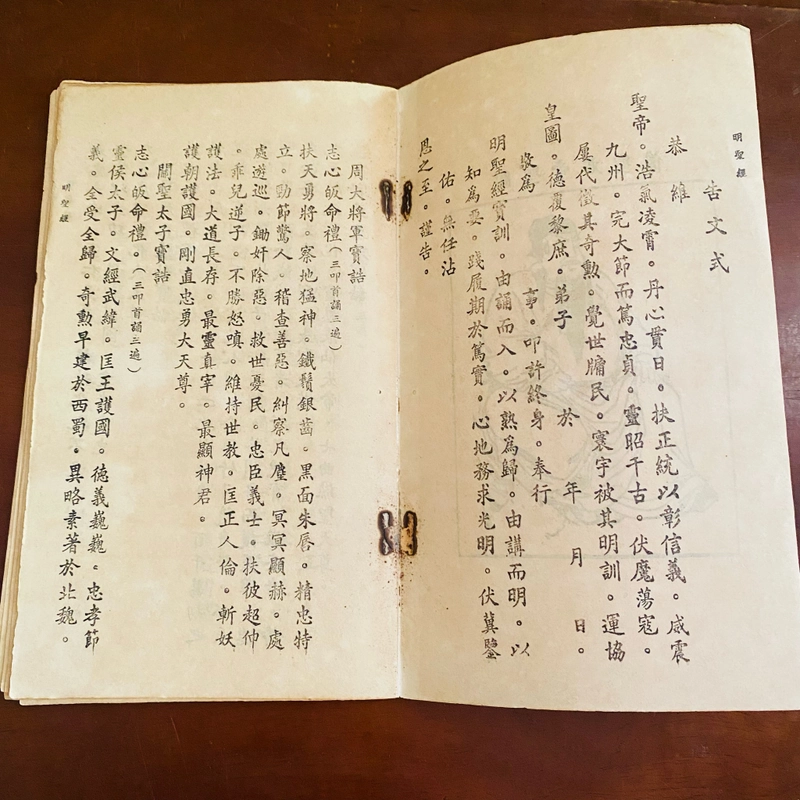 明聖經
告文式
恭維
聖帝。浩氣凌霄。丹心貫日。扶正統以彰信義。威震
九州。完大節而篤忠貞。靈昭千古。伏魔蕩寇。
屢代徵其奇勲。覺世牖民。寰宇被其明訓。運協
皇圖。德覆黎庶。弟子　於　年　月　日。
敬為　事。叩許終身。奉行
明聖經寶訓。由誦而入。以熟為歸。由講而明。以
知為要。踐履期於篤實。心地務求光明。伏冀鑒
佑。無任沾
恩之至。謹告。
周大將軍寶誥
志心皈命禮。（三叩首誦三遍）
扶天勇將。察地猛神。鐵鬚銀齒。黑面朱唇。精忠特
立。勁節驚人。稽查善惡。糾察凡塵。冥冥顯赫。處
處遊巡。鋤奸除惡。救世憂民。忠臣義士。扶彼超伸
。乖兒逆子。不勝怒嗔。維持世教。匡正人倫。斬妖
護法。大道長存。最靈真宰。最顯神君。
護朝護國。剛直忠勇大天尊。
關聖太子寶誥
志心皈命禮。（三叩首誦三遍）
靈侯太子。文經武緯。匡王護國。德義巍巍。忠孝節
義。全受全歸。奇勲早建於西蜀。異略素著於北魏。
明聖經